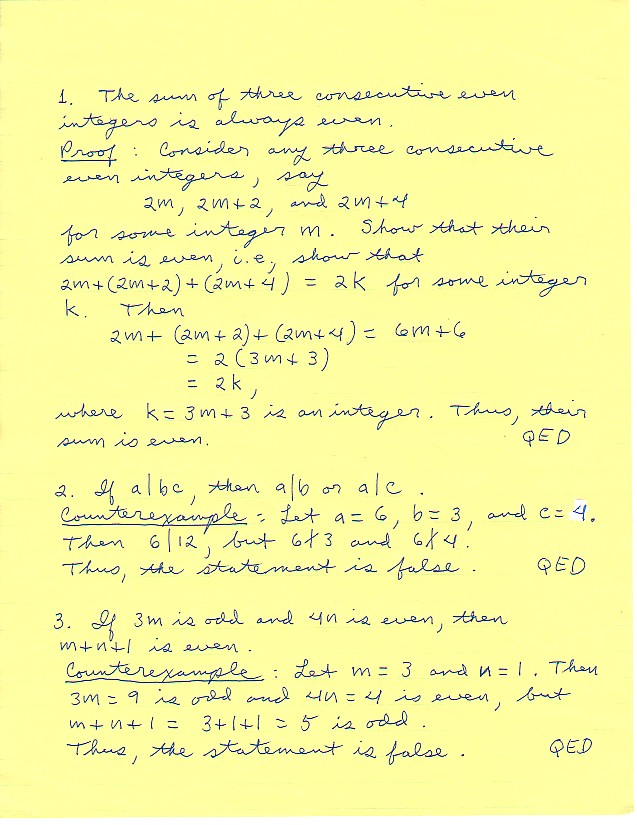 1. The sum of three consecutive even
integers is always even.
Proof : Consider any three consecutive
even integers, say
2m, 2m+2, and 2m+4
for some integer m. Show that their
sum is even, i.e, show that
2m+(2m+2)+(2m+4) = 2k for some integer
k. Then
2m+ (2m+2)+(2m+4) = 6m+6
= 2(3m+3)
= 2k,
where k=3m+3 is an integer. Thus, their
sum is even. QED
2. If a|bc, then a|b or a|c.
Counterexample : Let a=6, b=3, and c=4.
Then 6|12, but 6∤3 and 6∤4.
Thus, the statement is false. QED
3. If 3m is odd and 4n is even, then
m+n+1 is even.
Counterexample : Let m=3 and n=1. Then
3m=9 is odd and 4n=4 is even, but
m+n+1 = 3+1+1 = 5 is odd.
Thus, the statement is false. QED